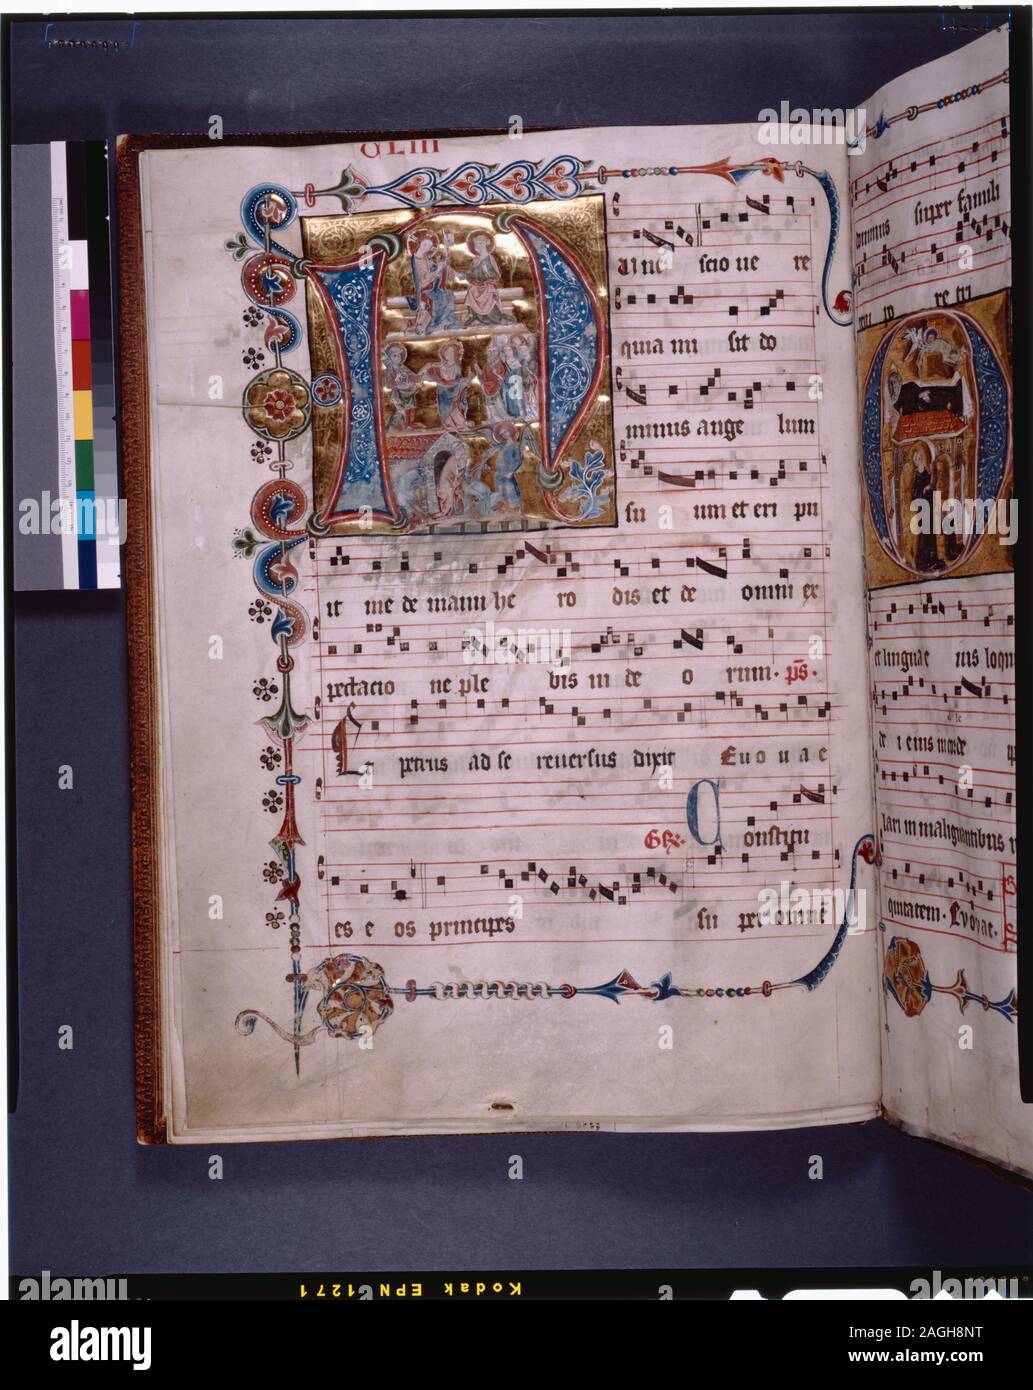 CLIII
N unc scio ue re
quia mi sit do
minus ange lum
su um et eri pu
it me de manu he ro dis et de omni ex
pectacio ne ple bis iu de o rum. ps.
Et petrus ad se reuersus dixit Euouae
Constitu
es e os principes su per omnē
super famili
re tri
et linguae
de i eius
lari in malignantibus
quitatem. Euouae.
Kodak EPN 1271
a
alamy
Image ID: 2AGH8NT
www.alamy.com